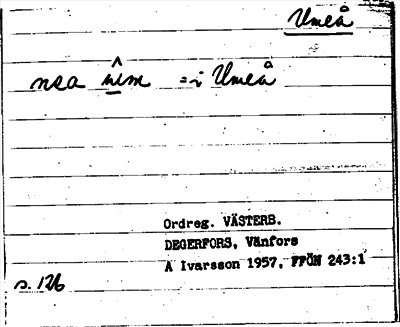 Umeå
nsa = i Umeå
Ordreg. VÄSTERB.
DEGERFORS, Vänfors
A Ivarsson 1957, FFÖN 243:1
s. 126